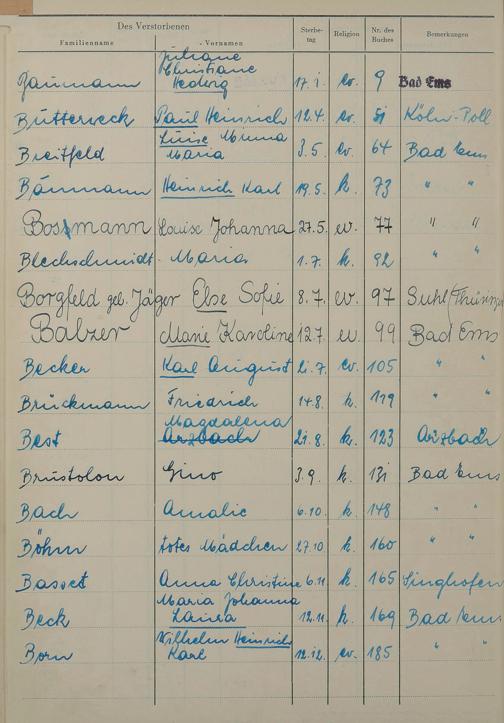 Des Verstorbenen
Familienname - Vornamen Sterbe-tag Religion Nr. des Buches Bemerkungen
Juliane
Christiane
Baumann Hedwig 17.1. ev. 9 Bad Ems
Butterweck Paul Heinrich 12.4. ev. 51 Köln-Poll
Luise Minna
Breitfeld Maria 3.5. ev. 64 Bad Ems
Bäumann Heinrich Karl 19.5. k. 73 " "
Bossmann Louise Johanna 27.5. ev. 77 " "
Blechschmidt Maria 1.7. k. 92 " "
Borgfeld geb. Jäger Else Sofie 8.7. ev. 97 Suhl
Balzer Marie Karoline 12.7. ev. 99 Bad Ems
Becker Karl August 21.7. ev. 105 " "
Brückmann Friedrich 14.8. k. 119 " "
Magdalena
Best Arzbach 21.8. k. 123 Arzbach
Brustolon Gino 3.9. k. 131 Bad Ems
Bach Amalie 6.10. k. 148 " "
Böhm totes Mädchen 27.10. k. 160 " "
Basset Anna Christine 6.11. k. 165 Singhofen
Maria Johanna
Beck Laura 12.11. k. 169 Bad Ems
Wilhelm Heinrich
Born Karl 12.12. ev. 185 " "